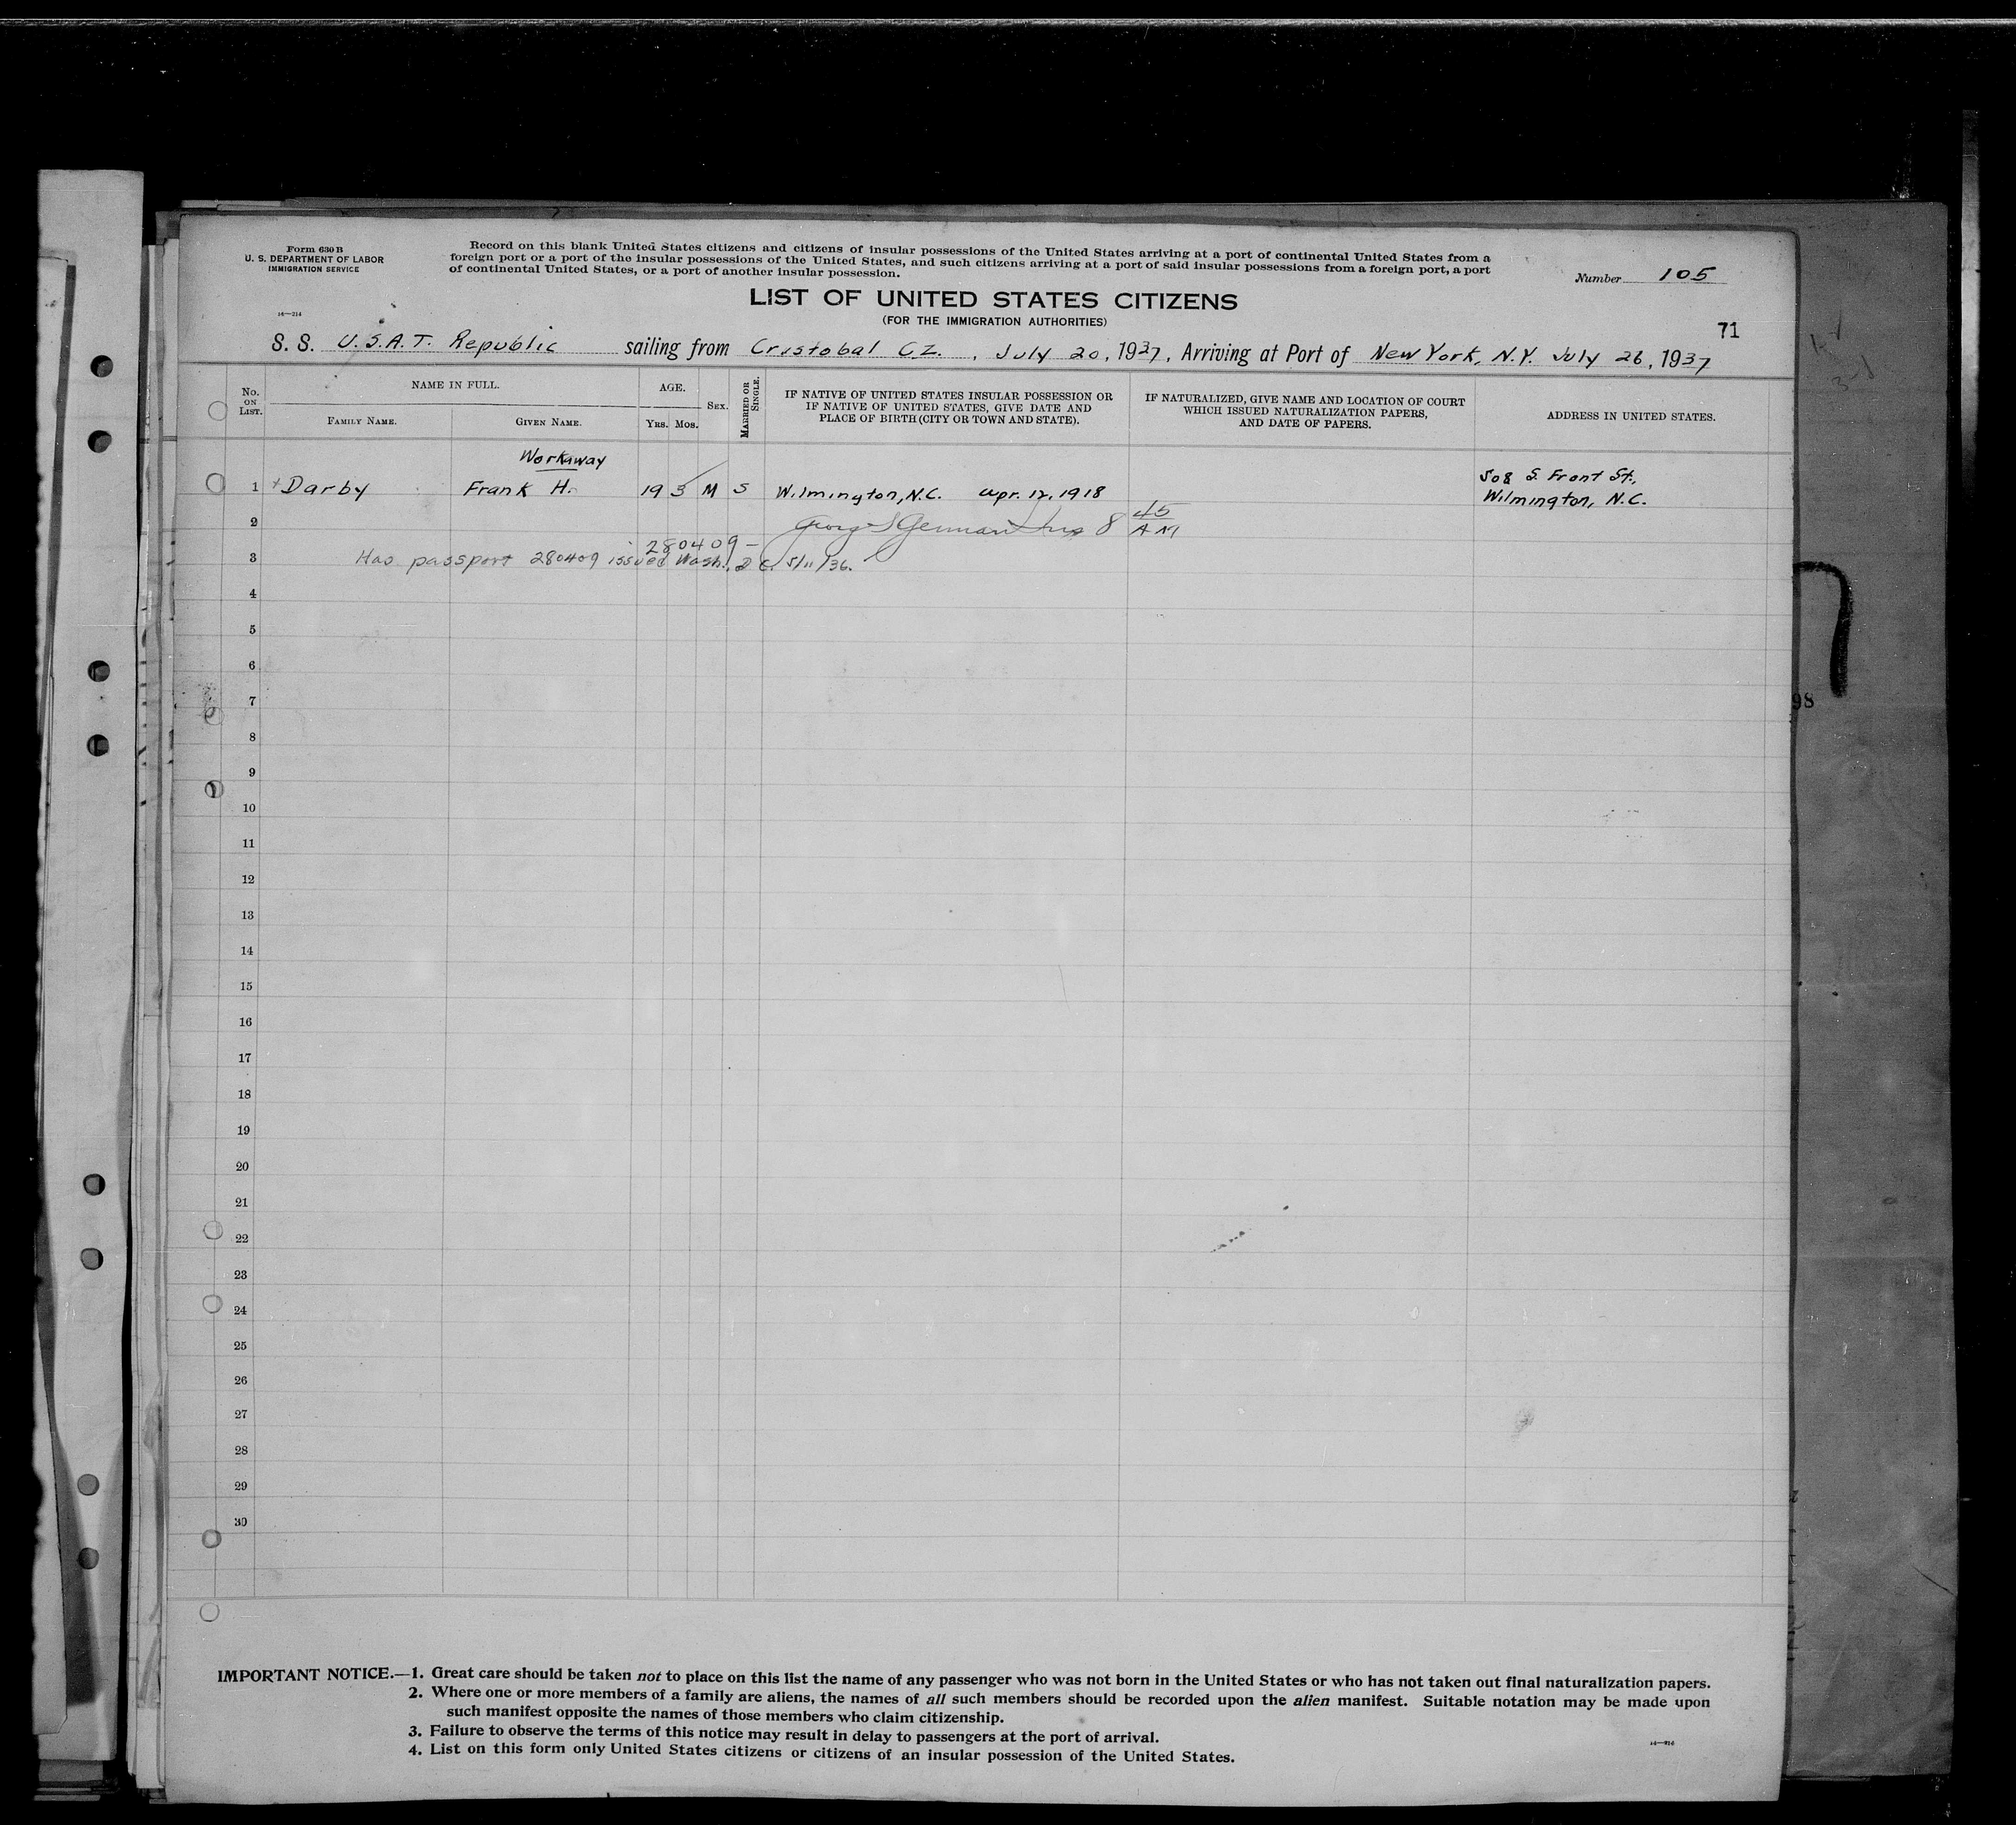 Form 630 B
U. S. DEPARTMENT OF LABOR
IMMIGRATION SERVICE
Record on this blank United States citizens and citizens of insular possessions of the United States arriving at a port of continental United States from a
foreign port or a port of the insular possessions of the United States, and such citizens arriving at a port of said insular possessions from a foreign port, a port
of continental United States, or a port of another insular possession.
Number 105
LIST OF UNITED STATES CITIZENS
(FOR THE IMMIGRATION AUTHORITIES)
14—214
71
S. S. U.S.A.T. Republic sailing from Cristobal C.Z., July 20, 1937, Arriving at Port of New York, N.Y. July 26, 1937
No. ON LIST.
NAME IN FULL.
FAMILY NAME.
GIVEN NAME.
AGE.
YRS. MOS.
SEX.
MARRIED OR SINGLE.
IF NATIVE OF UNITED STATES INSULAR POSSESSION OR
IF NATIVE OF UNITED STATES, GIVE DATE AND
PLACE OF BIRTH (CITY OR TOWN AND STATE).
IF NATURALIZED, GIVE NAME AND LOCATION OF COURT
WHICH ISSUED NATURALIZATION PAPERS,
AND DATE OF PAPERS.
ADDRESS IN UNITED STATES.
Workaway
1 Darby Frank H. 19 3 M S Wilmington, N.C. Apr. 12, 1918
508 S. Front St.,
Wilmington, N.C.
2 8 45 AM
280409 —
3 Has passport 280409 issued Wash., D.C. 5/11/36.
4
5
6
7
8
9
10
11
12
13
14
15
16
17
18
19
20
21
22
23
24
25
26
27
28
29
30
98
IMPORTANT NOTICE.—1. Great care should be taken not to place on this list the name of any passenger who was not born in the United States or who has not taken out final naturalization papers.
2. Where one or more members of a family are aliens, the names of all such members should be recorded upon the alien manifest. Suitable notation may be made upon
such manifest opposite the names of those members who claim citizenship.
3. Failure to observe the terms of this notice may result in delay to passengers at the port of arrival.
4. List on this form only United States citizens or citizens of an insular possession of the United States.
14—214